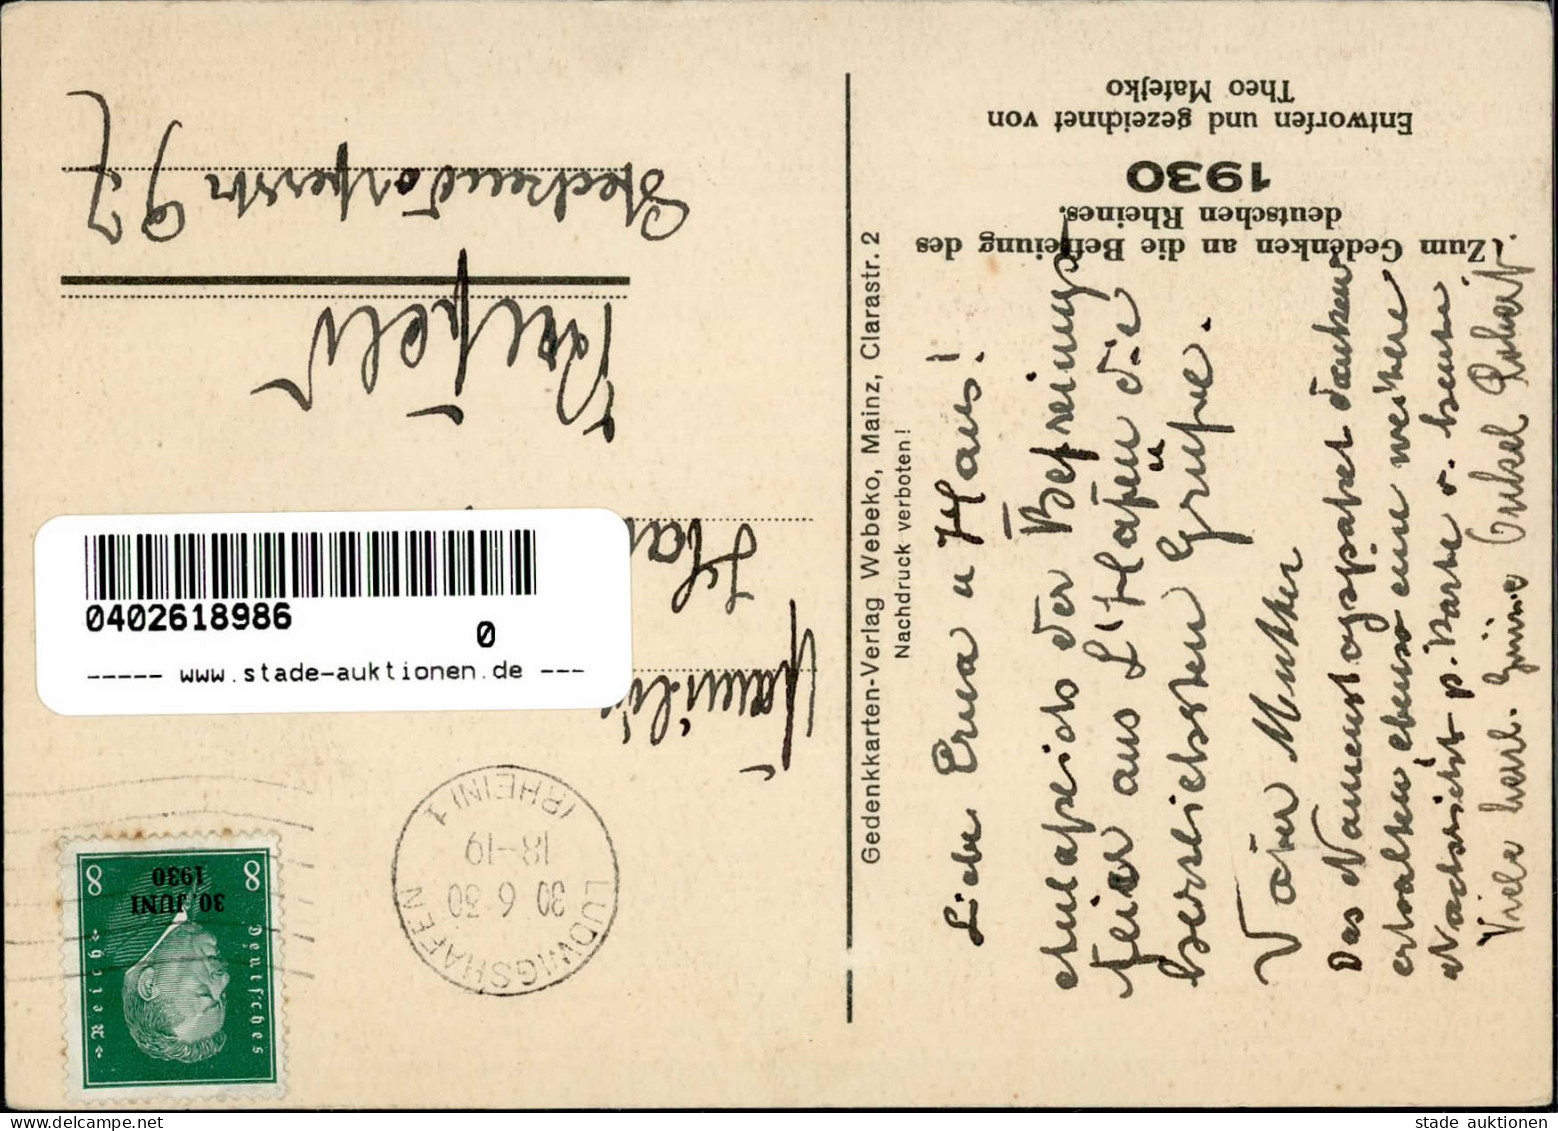 Zum Gedenken an die Befreiung des
deutschen Rheines.
1930
Entworfen und gezeichnet von
Theo Matejko
Gedenkkarten-Verlag Webeko, Mainz, Clarastr. 2
Nachdruck verboten!
Liebe Erna u Hans!
Anlässlich der Befreiungs
feier aus L'Hafen die
herzlichsten Grüße.
Vater Mutter
Das Namenstagspaket dankend
erhalten ebenso eine weitere
Nachricht p. Karte v. heute.
Viele herzl. Grüsse Onkel Robert
Familie
Krefeld
97
LUDWIGSHAFEN
(RHEIN) 1
30 6 30
18-19
Deutsches
Reich
8 8
30. JUNI
1930
0402618986
0
----- www.stade-auktionen.de ---
stade auktionen